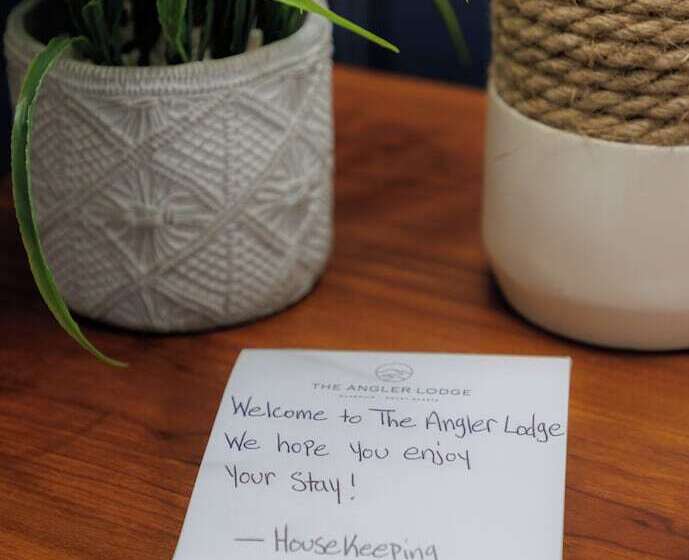 THE ANGLER LODGE
Welcome to The Angler Lodge
We hope you enjoy
Your Stay!
— HouseKeeping